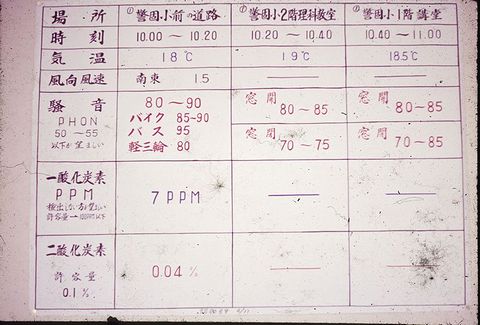 場所 ①警固小前の道路 ①警固小2階理科教室 ②警固小1階講堂
時刻 10.00〜10.20 10.20〜10.40 10.40〜11.00
気温 18℃ 19℃ 18.5℃
風向風速 南東 15 — —
騒音 80〜90 窓開 80〜85 窓開 80〜85
PHON バイク 85〜90
50〜55 バス 95 窓閉 70〜75 窓閉 70〜85
以下が望ましい 軽三輪 80
一酸化炭素
PPM 7PPM — —
検出しない方が望ましい
許容量一100PPM以下
二酸化炭素
許容量 0.04% — —
0.1%